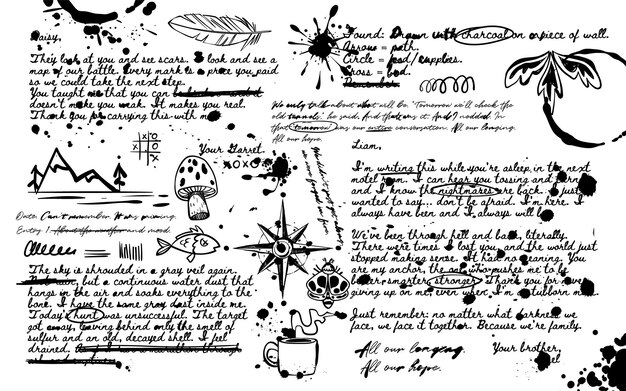 Daisy,
They look at you and see scars. I look and see a
map of our battle. Every mark is a price you paid
so we could take the next step.
You taught me that you can be
doesn't make you weak. It makes you real.
Thank you for carrying this with me
Your Garret.
XOXO
Date: Can't remember. It was raining.
Entry 1. and mood.
The sky is shrouded in a gray veil again.
but a continuous water dust that
hangs in the air and soaks everything to the
bone. I have the same gray dust inside me.
Today's hunt was unsuccessful. The target
got away, leaving behind only the smell of
sulfur and an old, decayed shell. I feel
drained.
Found: Drawn with charcoal on a piece of wall.
Arrow = path.
Circle = food/supplies.
Cross = bad.
Remember
We only talk about what will be. "Tomorrow we'll check the
old tunnels," he said. And that was it. And I nodded. In
that tomorrow was our entire conversation. All our longing.
All our hope.
Liam,
I'm writing this while you're asleep in the next
motel room. I can hear you tossing and turning
and I know the nightmares are back. I just
wanted to say... don't be afraid. I'm here. I
always have been and I always will be.
We've been through hell and back, literally.
There were times I lost you, and the world just
stopped making sense. It had no meaning. You
are my anchor, the one who pushes me to be
better smarter stronger. Thank you for never
giving up on me, even when I'm a stubborn
Just remember: no matter what darkness we
face, we face it together. Because we're family.
All our longing.
All our hope.
Your brother,